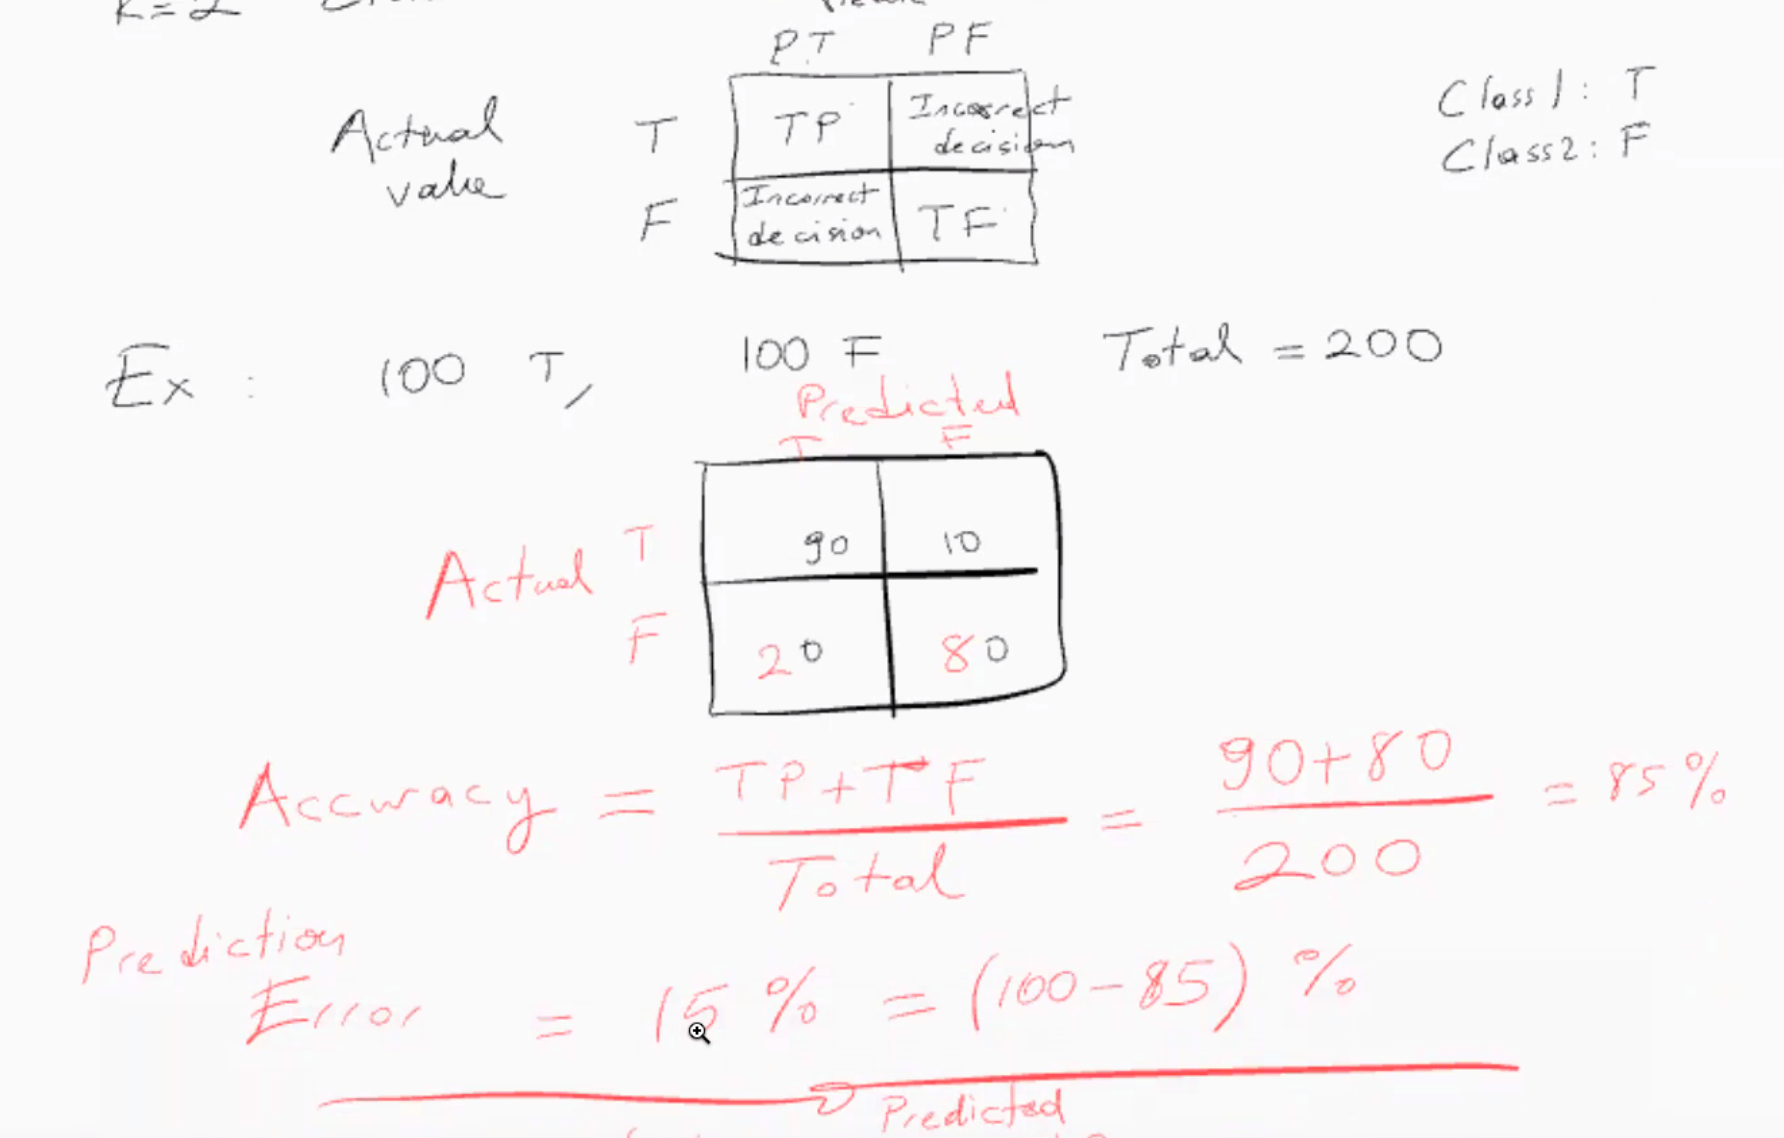 K=2
PT PF
Actual value T TP Incorrect decision
F Incorrect decision TF
Class1: T
Class2: F
Ex: 100 T, 100 F Total = 200
Predicted
T F
Actual T 90 10
F 20 80
Accuracy = TP+TF / Total = 90+80 / 200 = 85%
Prediction
Error = 15% = (100-85) %
Predicted